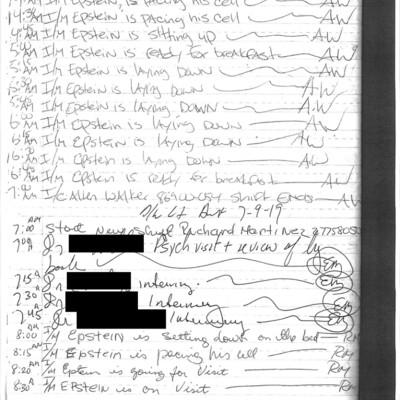 I/M Epstein, is pacing his cell AW
14:30 AM I/M Epstein is pacing his cell AW
4:45 AM I/M Epstein is sitting up AW
5:00 AM I/M Epstein is ready for breakfast AW
5:15 AM I/M Epstein is laying down AW
5:30 AM I/M Epstein is laying down AW
5:45 AM I/M Epstein is laying down A.W
6:00 AM I/M Epstein is laying down AW
6:15 AM I/M Epstein is laying down AW
6:30 AM I/M Epstein is laying down AW
6:45 AM I/M Epstein is ready for breakfast AW
7:00 AM I/C Allen Walker Shift Ends AW
7-9-19
7:00 AM Start New Richard Martinez
7:00 A Dr Psych visit + review of
book EM
7:15 A Dr Interview EM
7:30 A Dr Interview EM
7:45 A Dr Interviewing EM
8:00 AM I/M Epstein is setting down on the bed RM
8:15 A I/M Epstein is pacing his cell RM
8:20 A I/M Epstein is going for visit RM
8:30 A I/M Epstein is on visit RM